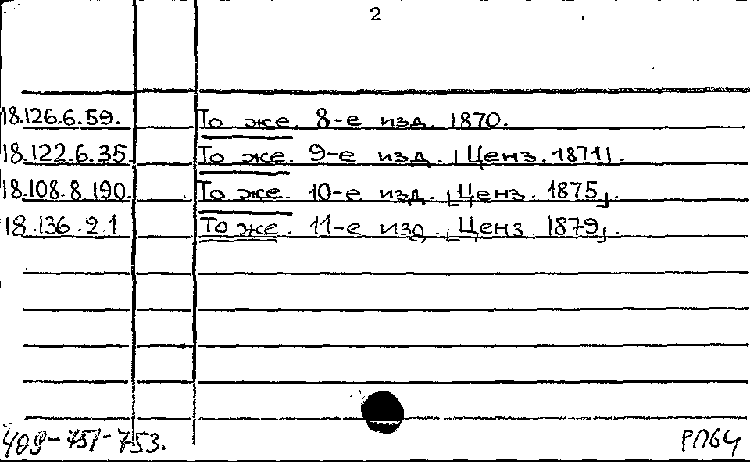 2
18.126.6.59. То же. 8-е изд. 1870.
18.122.6.35 То же. 9-е изд. [Ценз. 1871].
18.108.8.190 То же. 10-е изд. [Ценз. 1875].
18.136.2.1 То же. 11-е изд. [Ценз 1879].
409-751-753. РПБ4